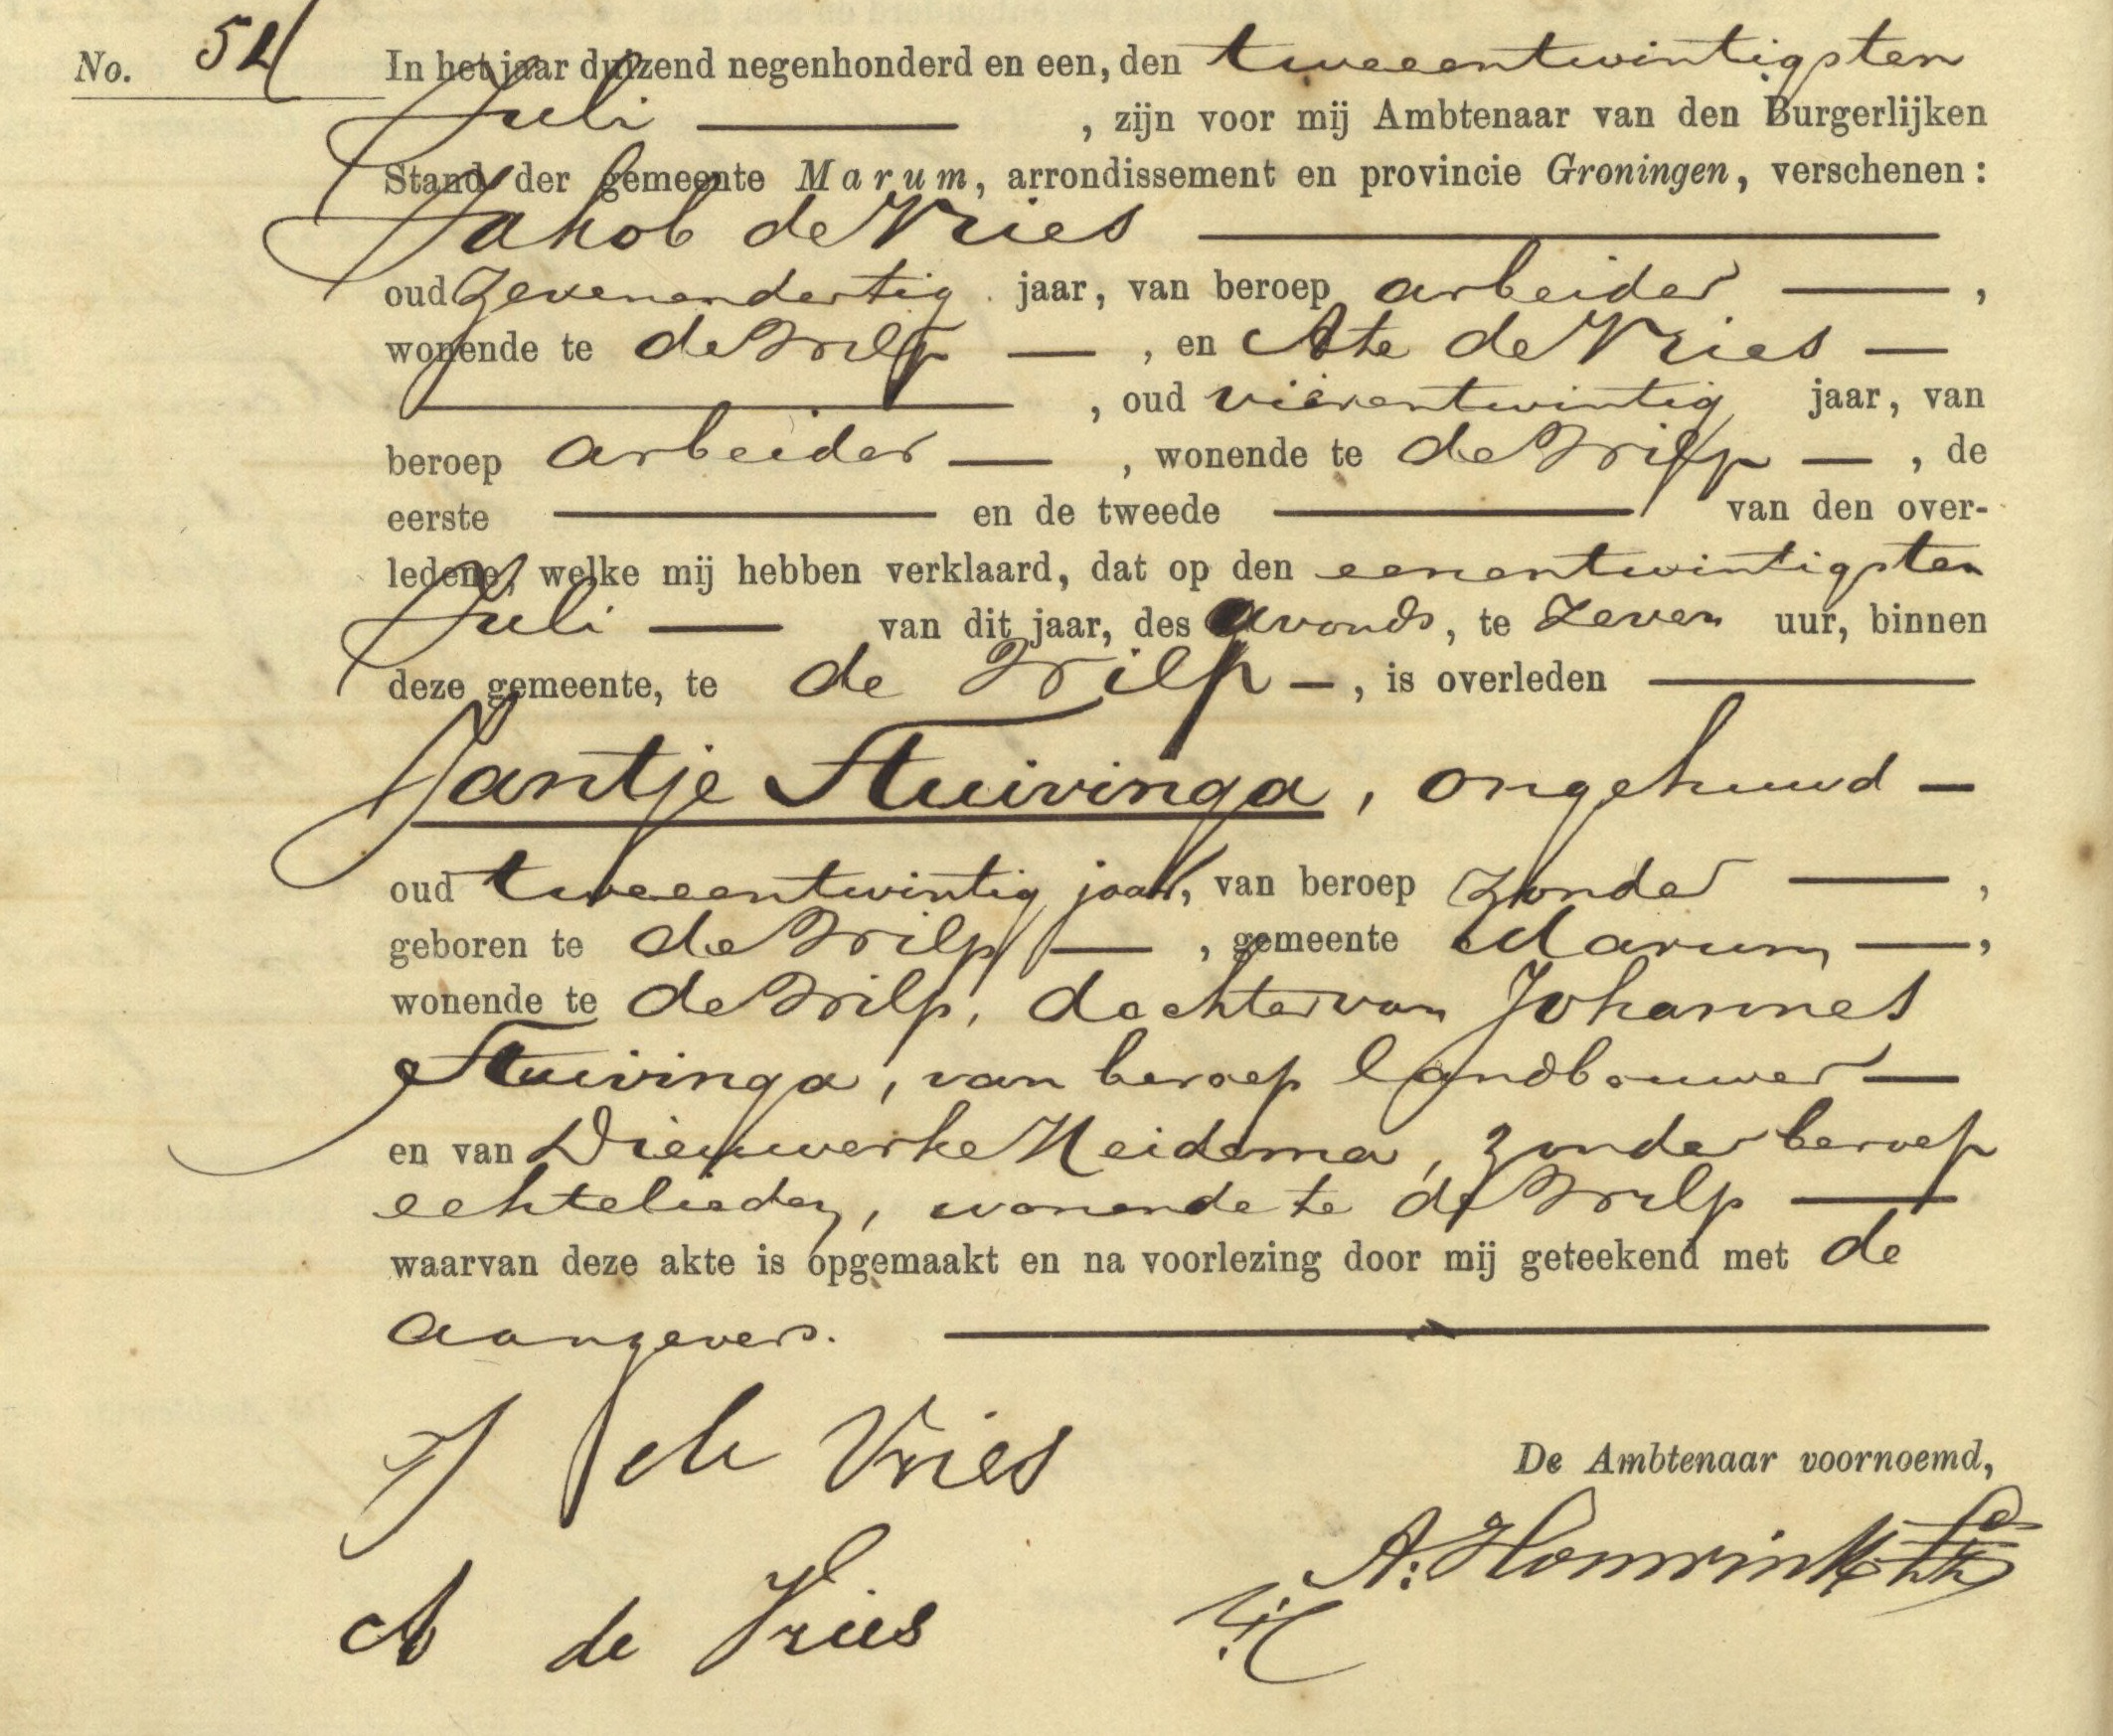 No. 52
In het jaar duizend negenhonderd en een, den tweeentwintigsten
Juli , zijn voor mij Ambtenaar van den Burgerlijken
Stand der gemeente Marum, arrondissement en provincie Groningen, verschenen:
Jakob de Vries
oud zevenendertig jaar, van beroep arbeider ,
wonende te de Wilp , en Ate de Vries
, oud vierentwintig jaar, van
beroep arbeider , wonende te de Wilp , de
eerste en de tweede van den over-
ledene, welke mij hebben verklaard, dat op den eenentwintigsten
Juli van dit jaar, des avonds, te zeven uur, binnen
deze gemeente, te de Wilp , is overleden
Jantje Stuivinga, ongehuwd
oud tweeentwintig jaar, van beroep zonder ,
geboren te de Wilp , gemeente Marum ,
wonende te de Wilp, dochter van Johannes
Stuivinga, van beroep landbouwer
en van Dieuwerke Heidema, zonder beroep
echtelieden, wonende te de Wilp
waarvan deze akte is opgemaakt en na voorlezing door mij geteekend met de
aangevers.
J de Vries
De Ambtenaar voornoemd,
A. Homrink
A de Vries